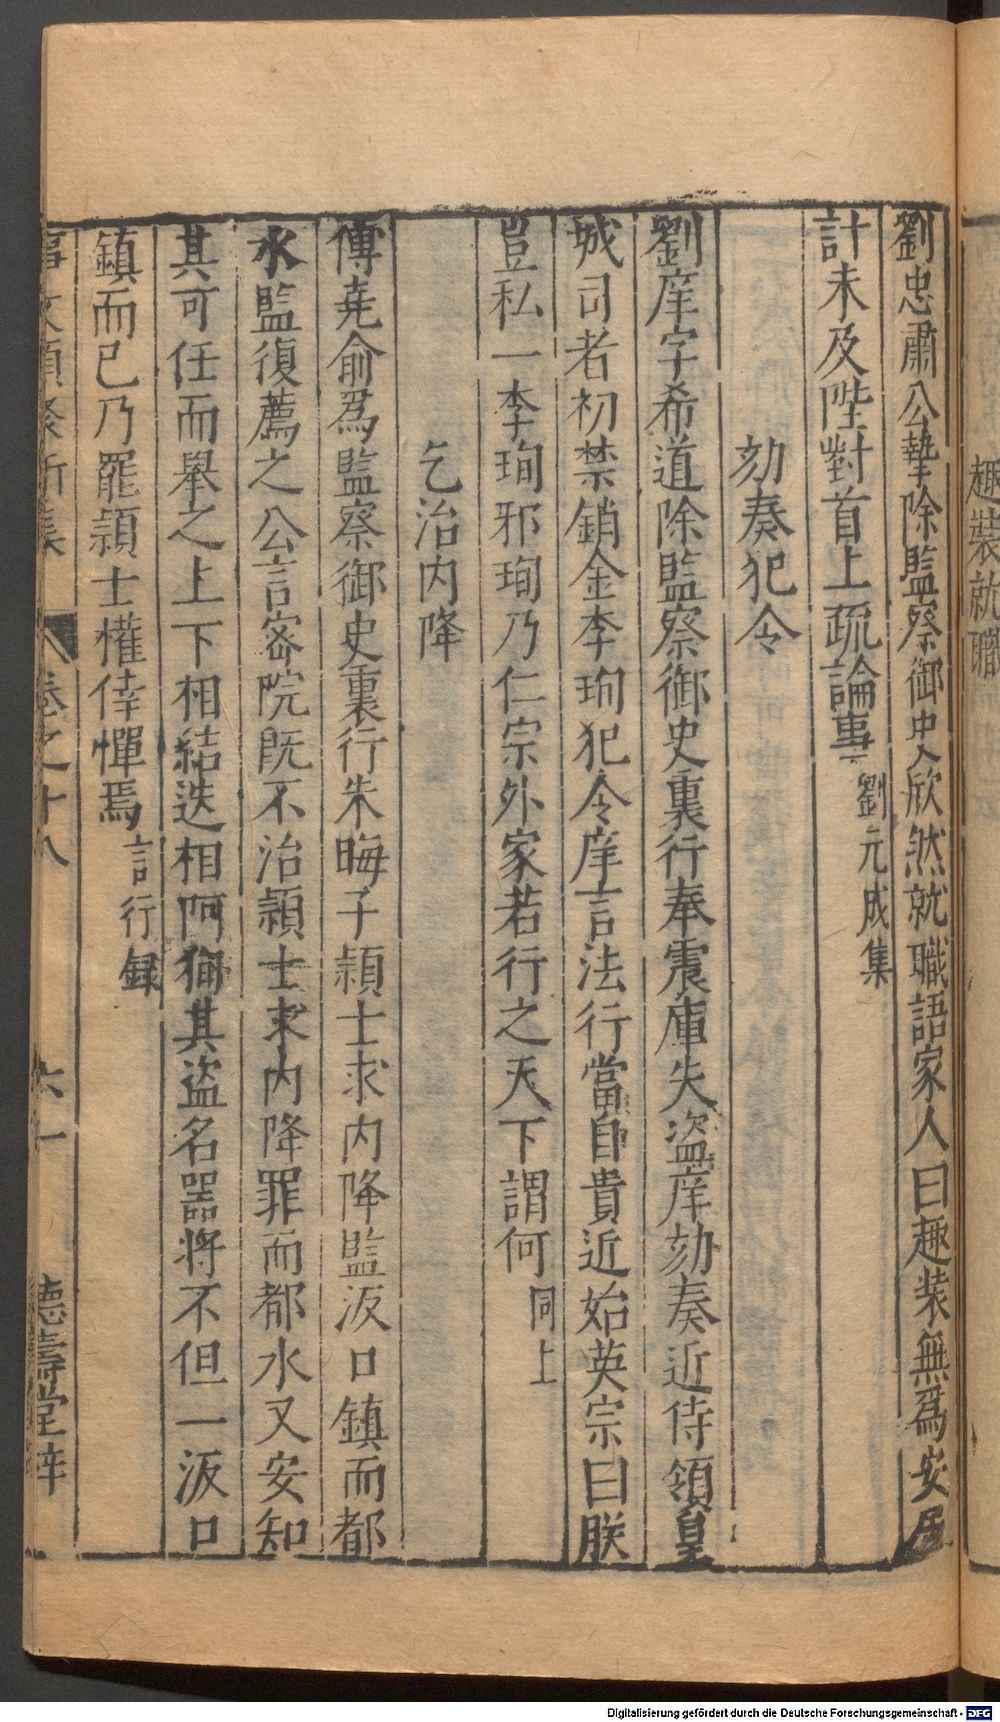 趣裝就職
劉忠肅公摯除監察御史欣然就職語家人曰趣装無爲安居
計未及陛對首上疏論事劉元成集
劾奏犯令
劉庠字希道除監察御史裏行奉震庫失盜庠劾奏近侍領皇
城司者初禁銷金李珣犯令庠言法行當自貴近始英宗曰朕
豈私一李珣邪珣乃仁宗外家若行之天下謂何同上
乞治内降
傅堯俞爲監察御史裏行朱晦子頴士求内降監汳口鎮而都
水監復薦之公言宻院既不治頴士求内降罪而都水又安知
其可任而舉之上下相結迭相阿狥其盜名器将不但一汳口
鎮而已乃罷頴士懽倖憚焉言行録
事文類聚新集 卷之十八 六一 德壽堂梓
Digitalisierung gefördert durch die Deutsche Forschungsgemeinschaft - DFG